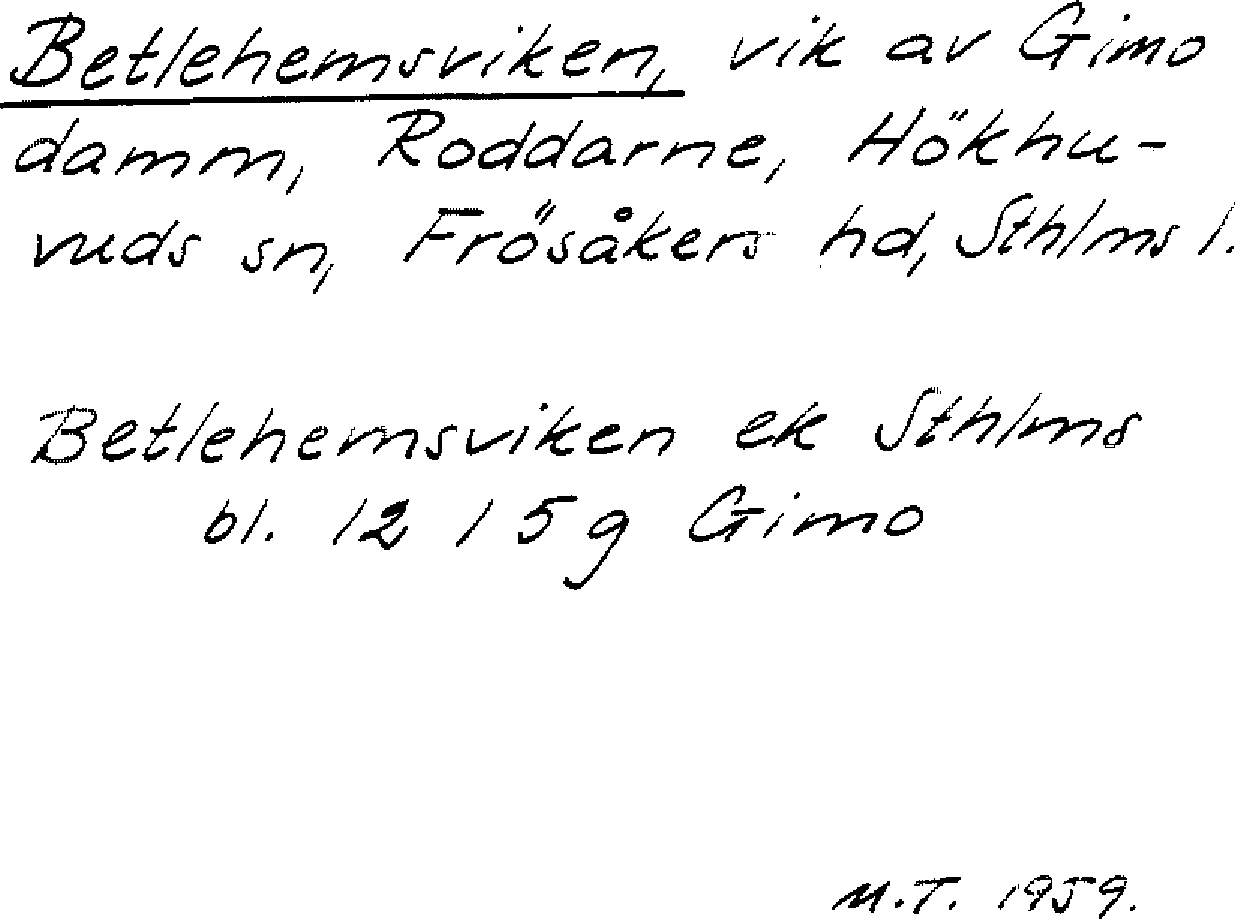 Betlehemsviken, vik av Gimo
damm, Roddarne, Hökhu-
vuds sn, Frösåkers hd, Sthlms l.
Betlehemsviken ek Sthlms
bl. 12 I 5 g Gimo
M.T. 1959.